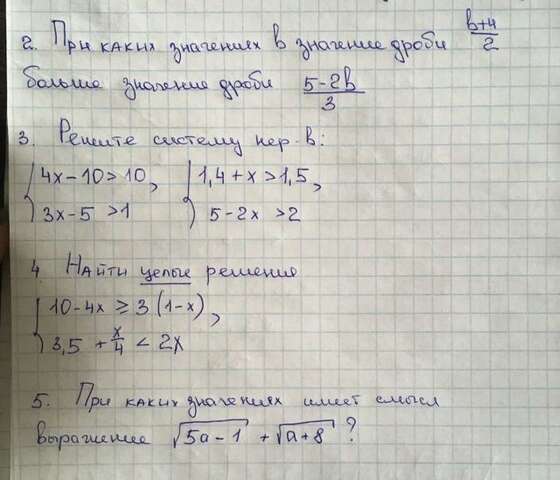 2. При каких значениях в значение дроби (b+4)/2
больше значение дроби (5-2b)/3
3. Решите систему нер-в:
{4x-10>10, {1,4+x>1,5,
3x-5>1 5-2x>2
4. Найти целые решения
{10-4x≥3(1-x),
3,5+x/4<2x
5. При каких значениях имеет смысл
выражение √(5a-1) + √(a+8) ?